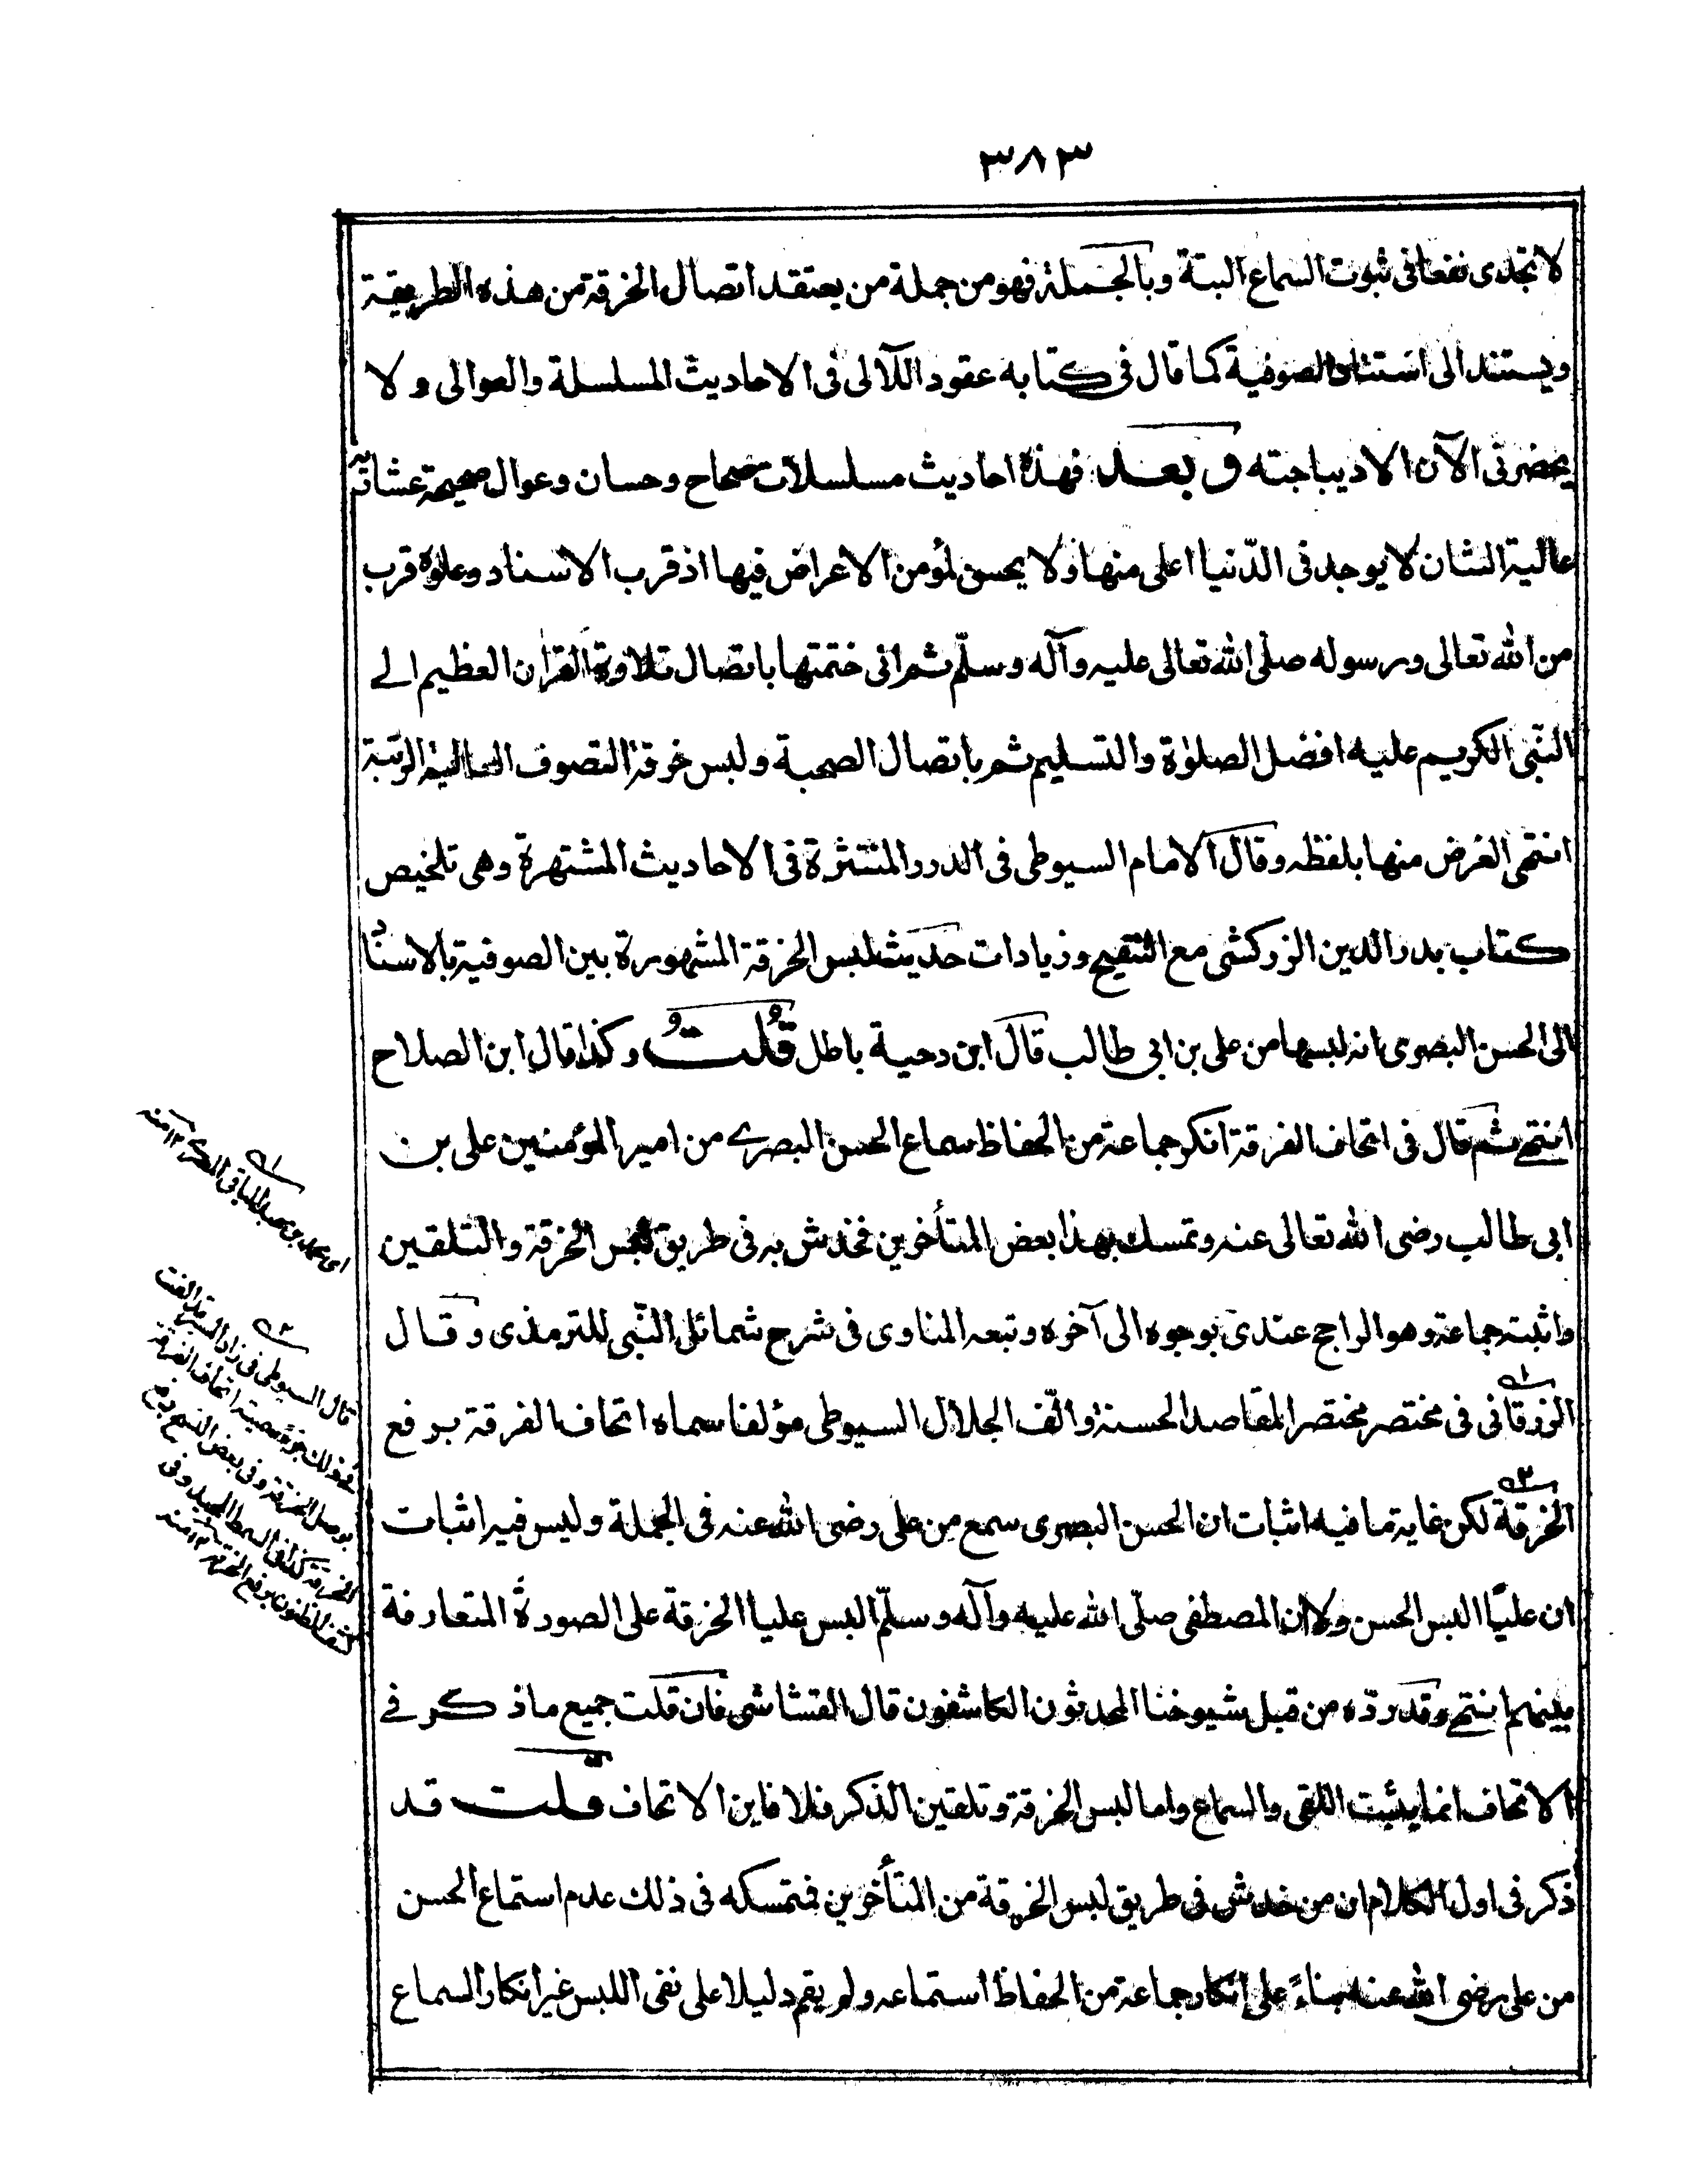 ٣٨٣
لا تجدى نفعا فى ثبوت السماع البتة وبالجملة فهو من جملة من يعتقد اتصال الخرقة من هذه الطريقة
ويستند الى استناد الصوفية كما قال فى كتابه عقود اللآلى فى الاحاديث المسلسلة والعوالى ولا
يحضرنى الآن الا ديباجته وبعد فهذه احاديث مسلسلات صحاح وحسان وعوال صحيحة عشاتية
عالية الشان لا يوجد فى الدّنيا اعلى منها ولا يحسن لمؤمن الاعراض فيها اذ قرب الاسناد وعلوّه قرب
من الله تعالى ورسوله صلى الله تعالى عليه وآله وسلّم ثم انى ختمتها باتصال تلاوة القرآن العظيم الے
النّبى الكريم عليه افضل الصلوٰة والتسليم ثم باتصال الصحبة ولبس خرقة التصوف العالية الرتبة
انتهى الغرض منها بلفظه وقال الامام السيوطى فى الدرر المنتثرة فى الاحاديث المشتهرة وهى تلخيص
كتاب بدر الدين الزركشى مع التنقيح وزيادات حديث لبس الخرقة المشهورة بين الصوفية بالاسناد
الى الحسن البصرى انه لبسها من على بن ابى طالب قال ابن دحية باطل قُلتُ وكذا قال ابن الصلاح
انتهے ثم قال فى اتحاف الفرقة انكر جماعة من الحفاظ سماع الحسن البصرے من امير المؤمنين على بن
ابى طالب رضى الله تعالى عنه وتمسك بهذا بعض المتأخرين فخدش به فى طريق لبس الخرقة والتلقين
واثبته جماعة وهو الراجح عندى بوجوه الى آخره وتبعه المناوى فى شرح شمائل النّبى للترمذى وقال
الزرقانى فى مختصر مختصر المقاصد الحسنة والّف الجلال السيوطى مؤلفا سماه اتحاف الفرقة برفع
الخرقة لكن غاية ما فيه اثبات ان الحسن البصرى سمع من على رضى الله عنه فى الجملة وليس فيه اثبات
ان عليًّا البس الحسن ولا ان المصطفى صلّى الله عليه وآله وسلّم البس عليا الخرقة على الصورة المتعارفة
بينهم انتهے وقد ردّه من قبل شيوخنا المحدثون الكاشفون قال القشاشى فان قلت جميع ما ذكر فے
الاتحاف انما يثبت اللقى والسماع واما لبس الخرقة وتلقين الذكر فلا فاين الاتحاف قلت قد
ذكر فى اول الكلام ان من خدش فى طريق لبس الخرقة من المتأخرين فمتمسكه فى ذلك عدم استماع الحسن
من على رضى الله عنه بناءً على انكار جماعة من الحفاظ استماعه ولم يقم دليلا على نفى اللبس غير انكار السماع
اى محمد بن عبد الباقى المصرے ١٢ منه
قال السيوطى فى زاد
فى ذلك جزءً سميته اتحاف الفرقة
بوصل الخرقة وفى بعض النسخ برفع
الخرقة كذا فى السمط المجيد وفى
كشف الظنون برفع الخرقة ١٢ منه